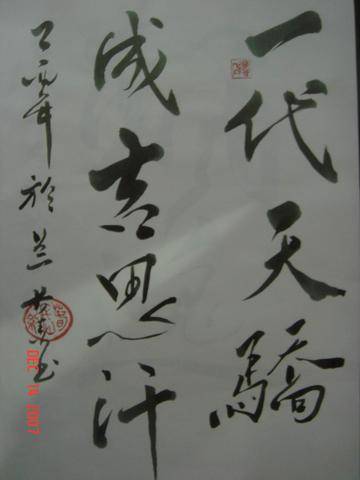 一代天驕
成吉思汗
丁亥年於兰
DEC 14 2007